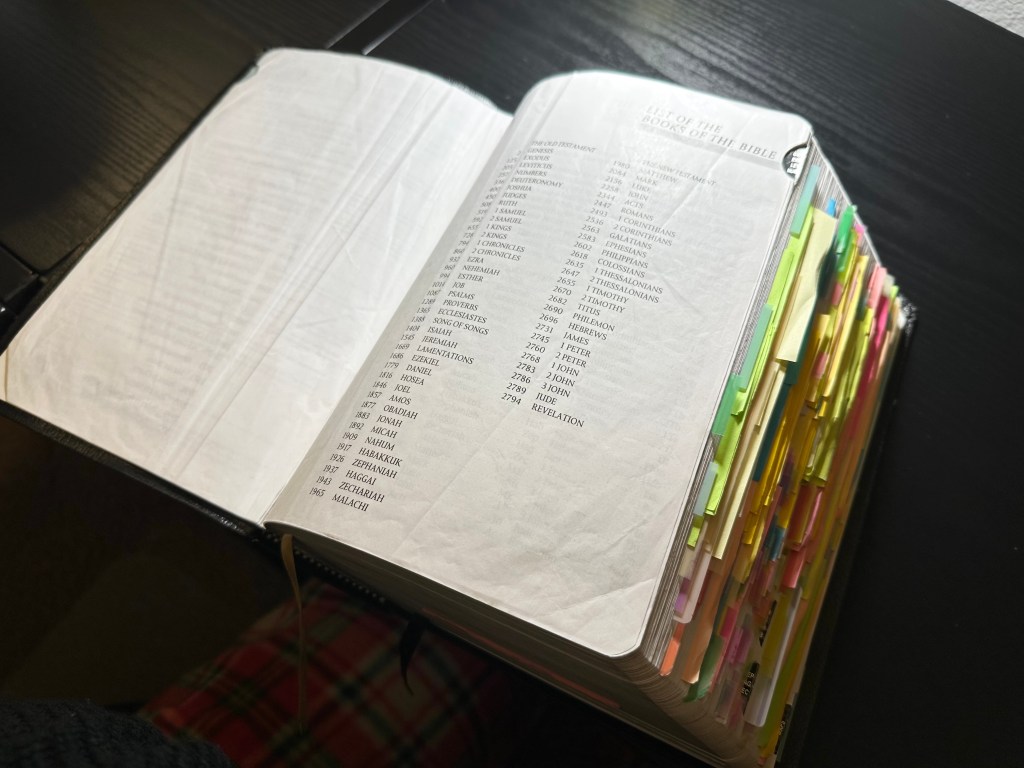 LIST OF THE
BOOKS OF THE BIBLE
THE OLD TESTAMENT
GENESIS
EXODUS
LEVITICUS
NUMBERS
DEUTERONOMY
JOSHUA
JUDGES
RUTH
1 SAMUEL
2 SAMUEL
1 KINGS
2 KINGS
1 CHRONICLES
2 CHRONICLES
EZRA
NEHEMIAH
ESTHER
1014 JOB
1087 PSALMS
1289 PROVERBS
1365 ECCLESIASTES
1388 SONG OF SONGS
1404 ISAIAH
1545 JEREMIAH
1669 LAMENTATIONS
1686 EZEKIEL
1779 DANIEL
1816 HOSEA
1846 JOEL
1857 AMOS
1877 OBADIAH
1883 JONAH
1892 MICAH
1909 NAHUM
1917 HABAKKUK
1926 ZEPHANIAH
1937 HAGGAI
1943 ZECHARIAH
1965 MALACHI
THE NEW TESTAMENT
MATTHEW
2084 MARK
LUKE
2254 JOHN
ACTS
2447 ROMANS
2493 1 CORINTHIANS
2536 2 CORINTHIANS
2563 GALATIANS
2583 EPHESIANS
2602 PHILIPPIANS
2618 COLOSSIANS
2635 1 THESSALONIANS
2647 2 THESSALONIANS
2655 1 TIMOTHY
2670 2 TIMOTHY
2682 TITUS
2690 PHILEMON
2696 HEBREWS
2731 JAMES
2745 1 PETER
2760 2 PETER
2768 1 JOHN
2783 2 JOHN
2786 3 JOHN
2789 JUDE
2794 REVELATION